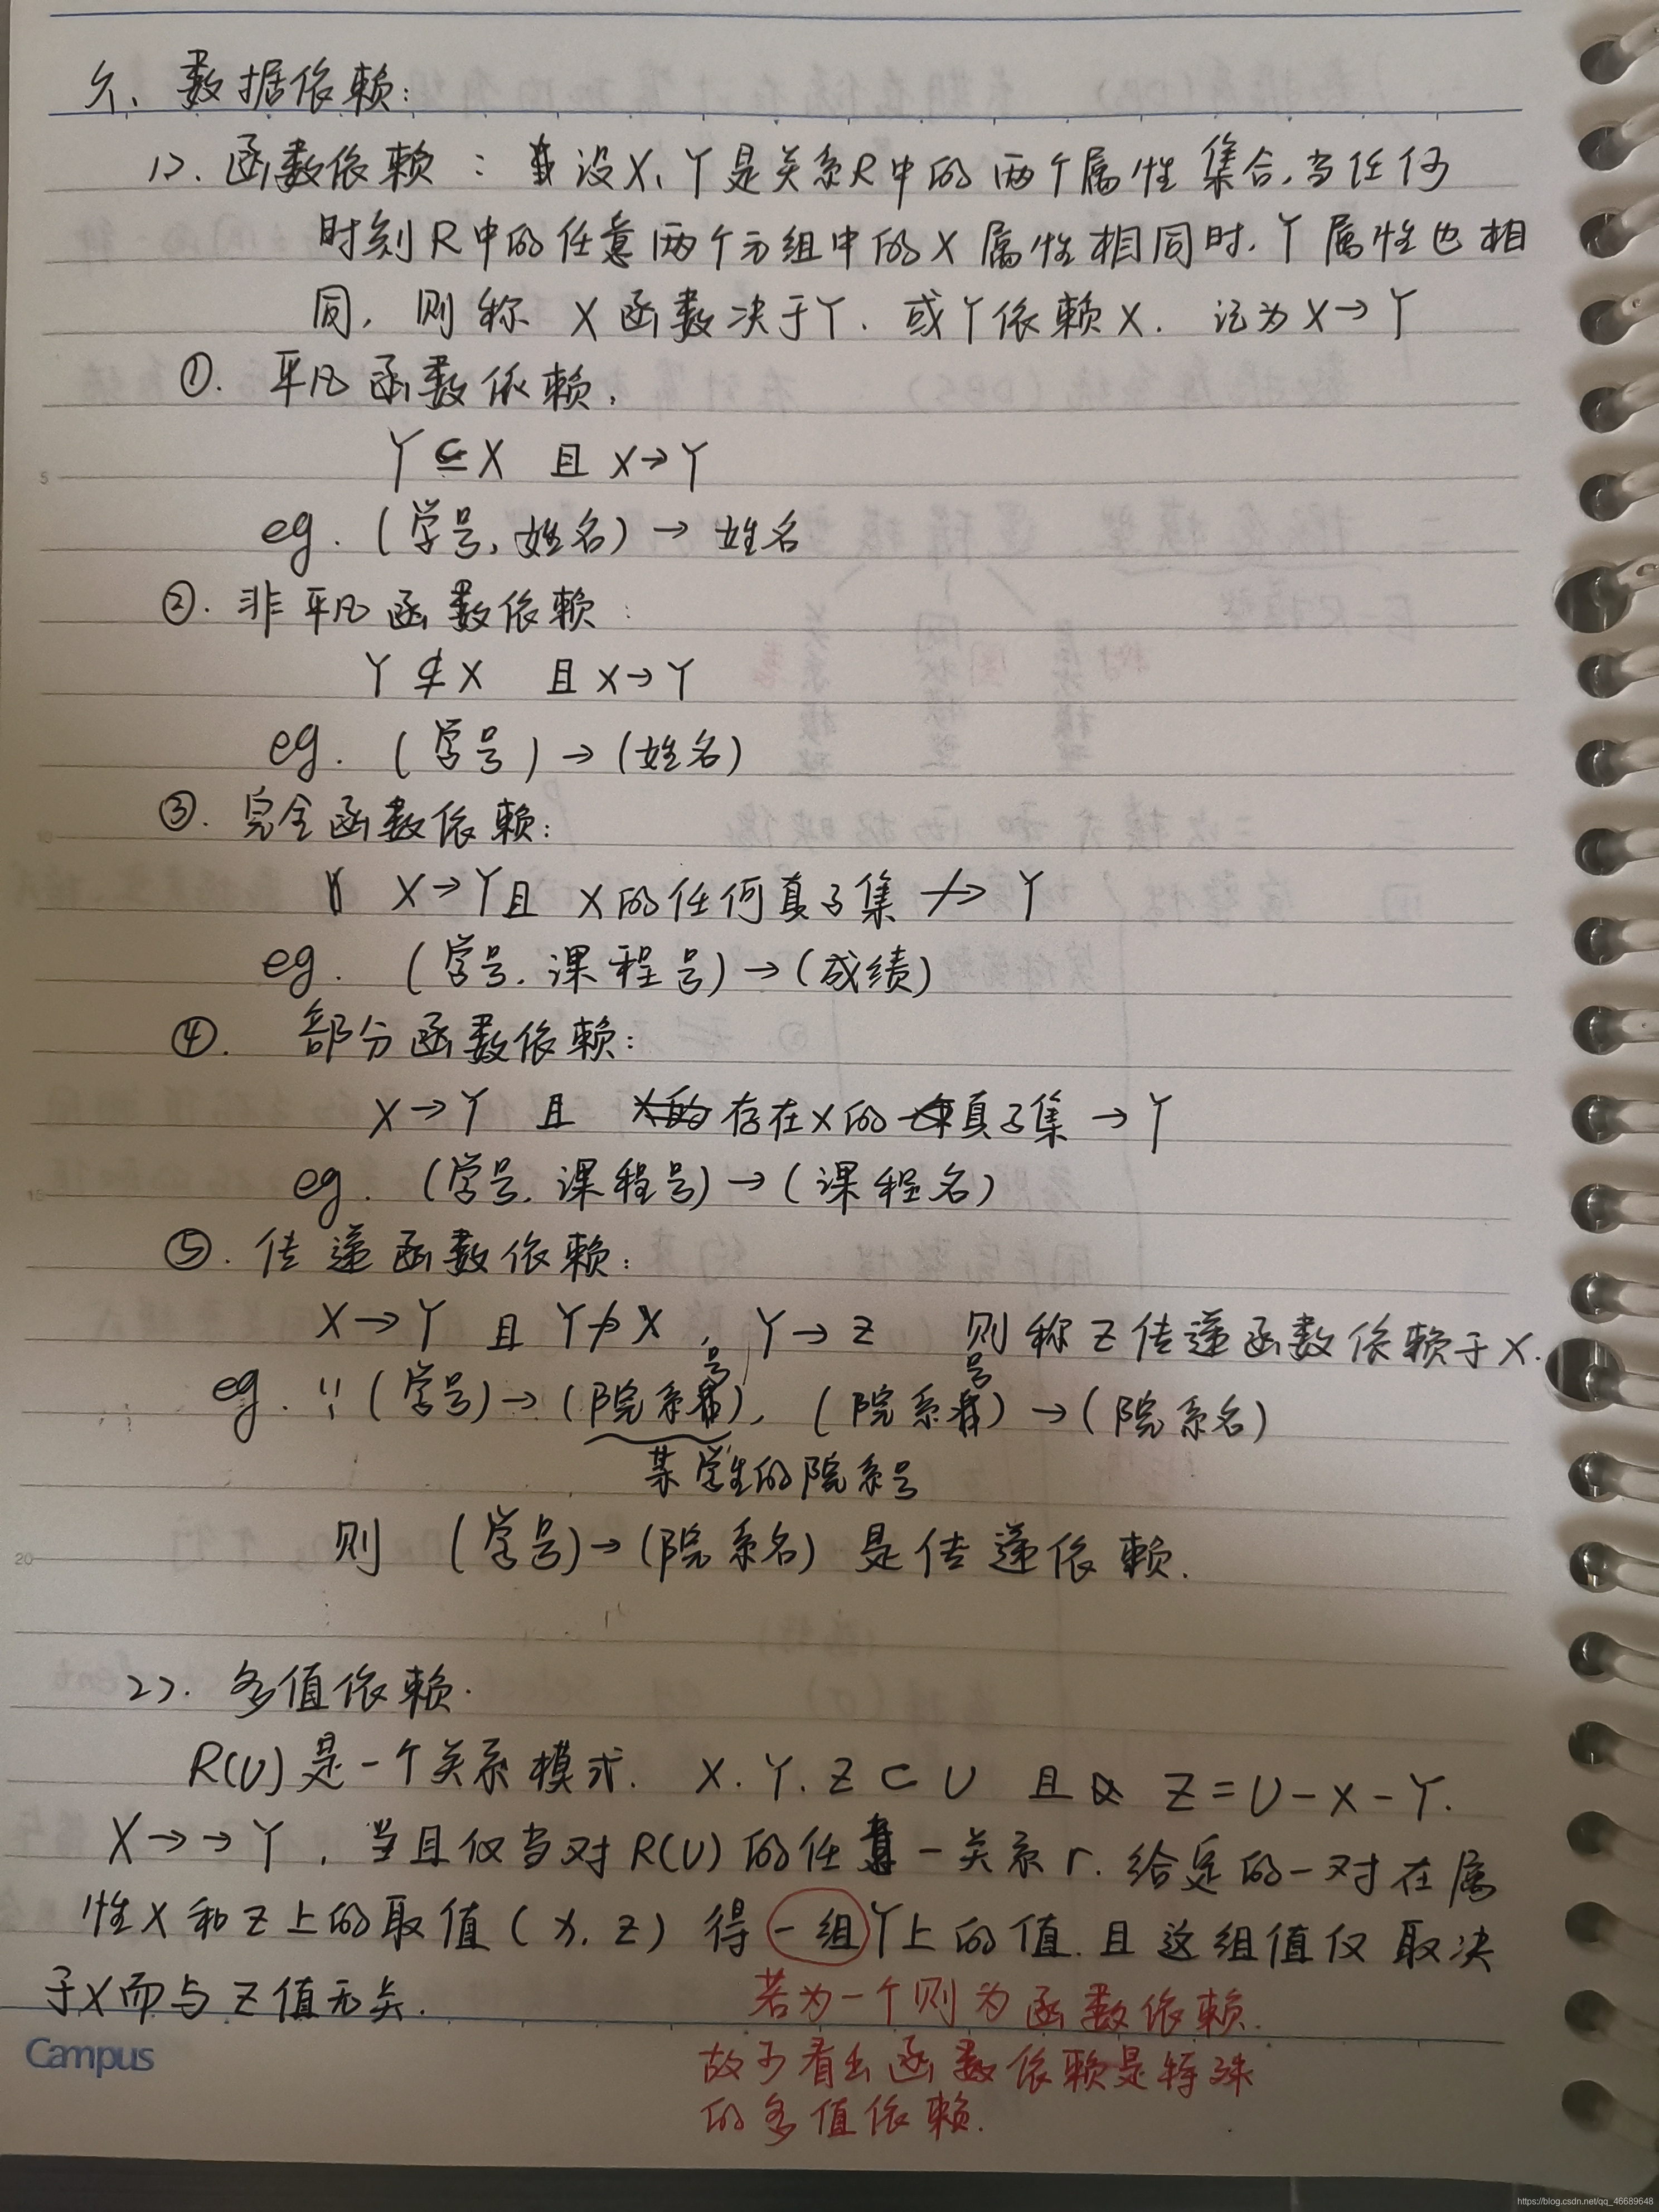 六、数据依赖:
1>. 函数依赖: 设X、Y是关系R中的两个属性集合,当任何
时刻R中的任意两个元组中的X属性相同时,Y属性也相
同,则称 X函数决于Y,或Y依赖X. 记为X→Y
①. 平凡函数依赖,
Y⊆X 且 X→Y
eg. (学号,姓名)→ 姓名
②. 非平凡函数依赖:
Y⊄X 且 X→Y
eg. (学号)→(姓名)
③. 完全函数依赖:
X→Y且 X的任何真子集 ↛ Y
eg. (学号,课程号)→(成绩)
④. 部分函数依赖:
X→Y 且 存在X的真子集→Y
eg. (学号,课程号)→(课程名)
⑤. 传递函数依赖:
X→Y 且 Y↛X , Y→Z 则称Z传递函数依赖于X.
eg. (学号)→(院系号), (院系号)→(院系名)
某学生的院系号
则 (学号)→(院系名) 是传递依赖.
2>. 多值依赖.
R(U)是一个关系模式. X.Y.Z⊂U 且 Z=U-X-Y.
X→→Y ,当且仅当对R(U)的任意一关系r.给定的一对在属
性X和Z上的取值(x,z) 得一组Y上的值.且这组值仅取决
于X而与Z值无关.
若为一个则为函数依赖.
故可看出函数依赖是特殊
的多值依赖.
5
15
20
Campus
https://blog.csdn.net/qq_46689648